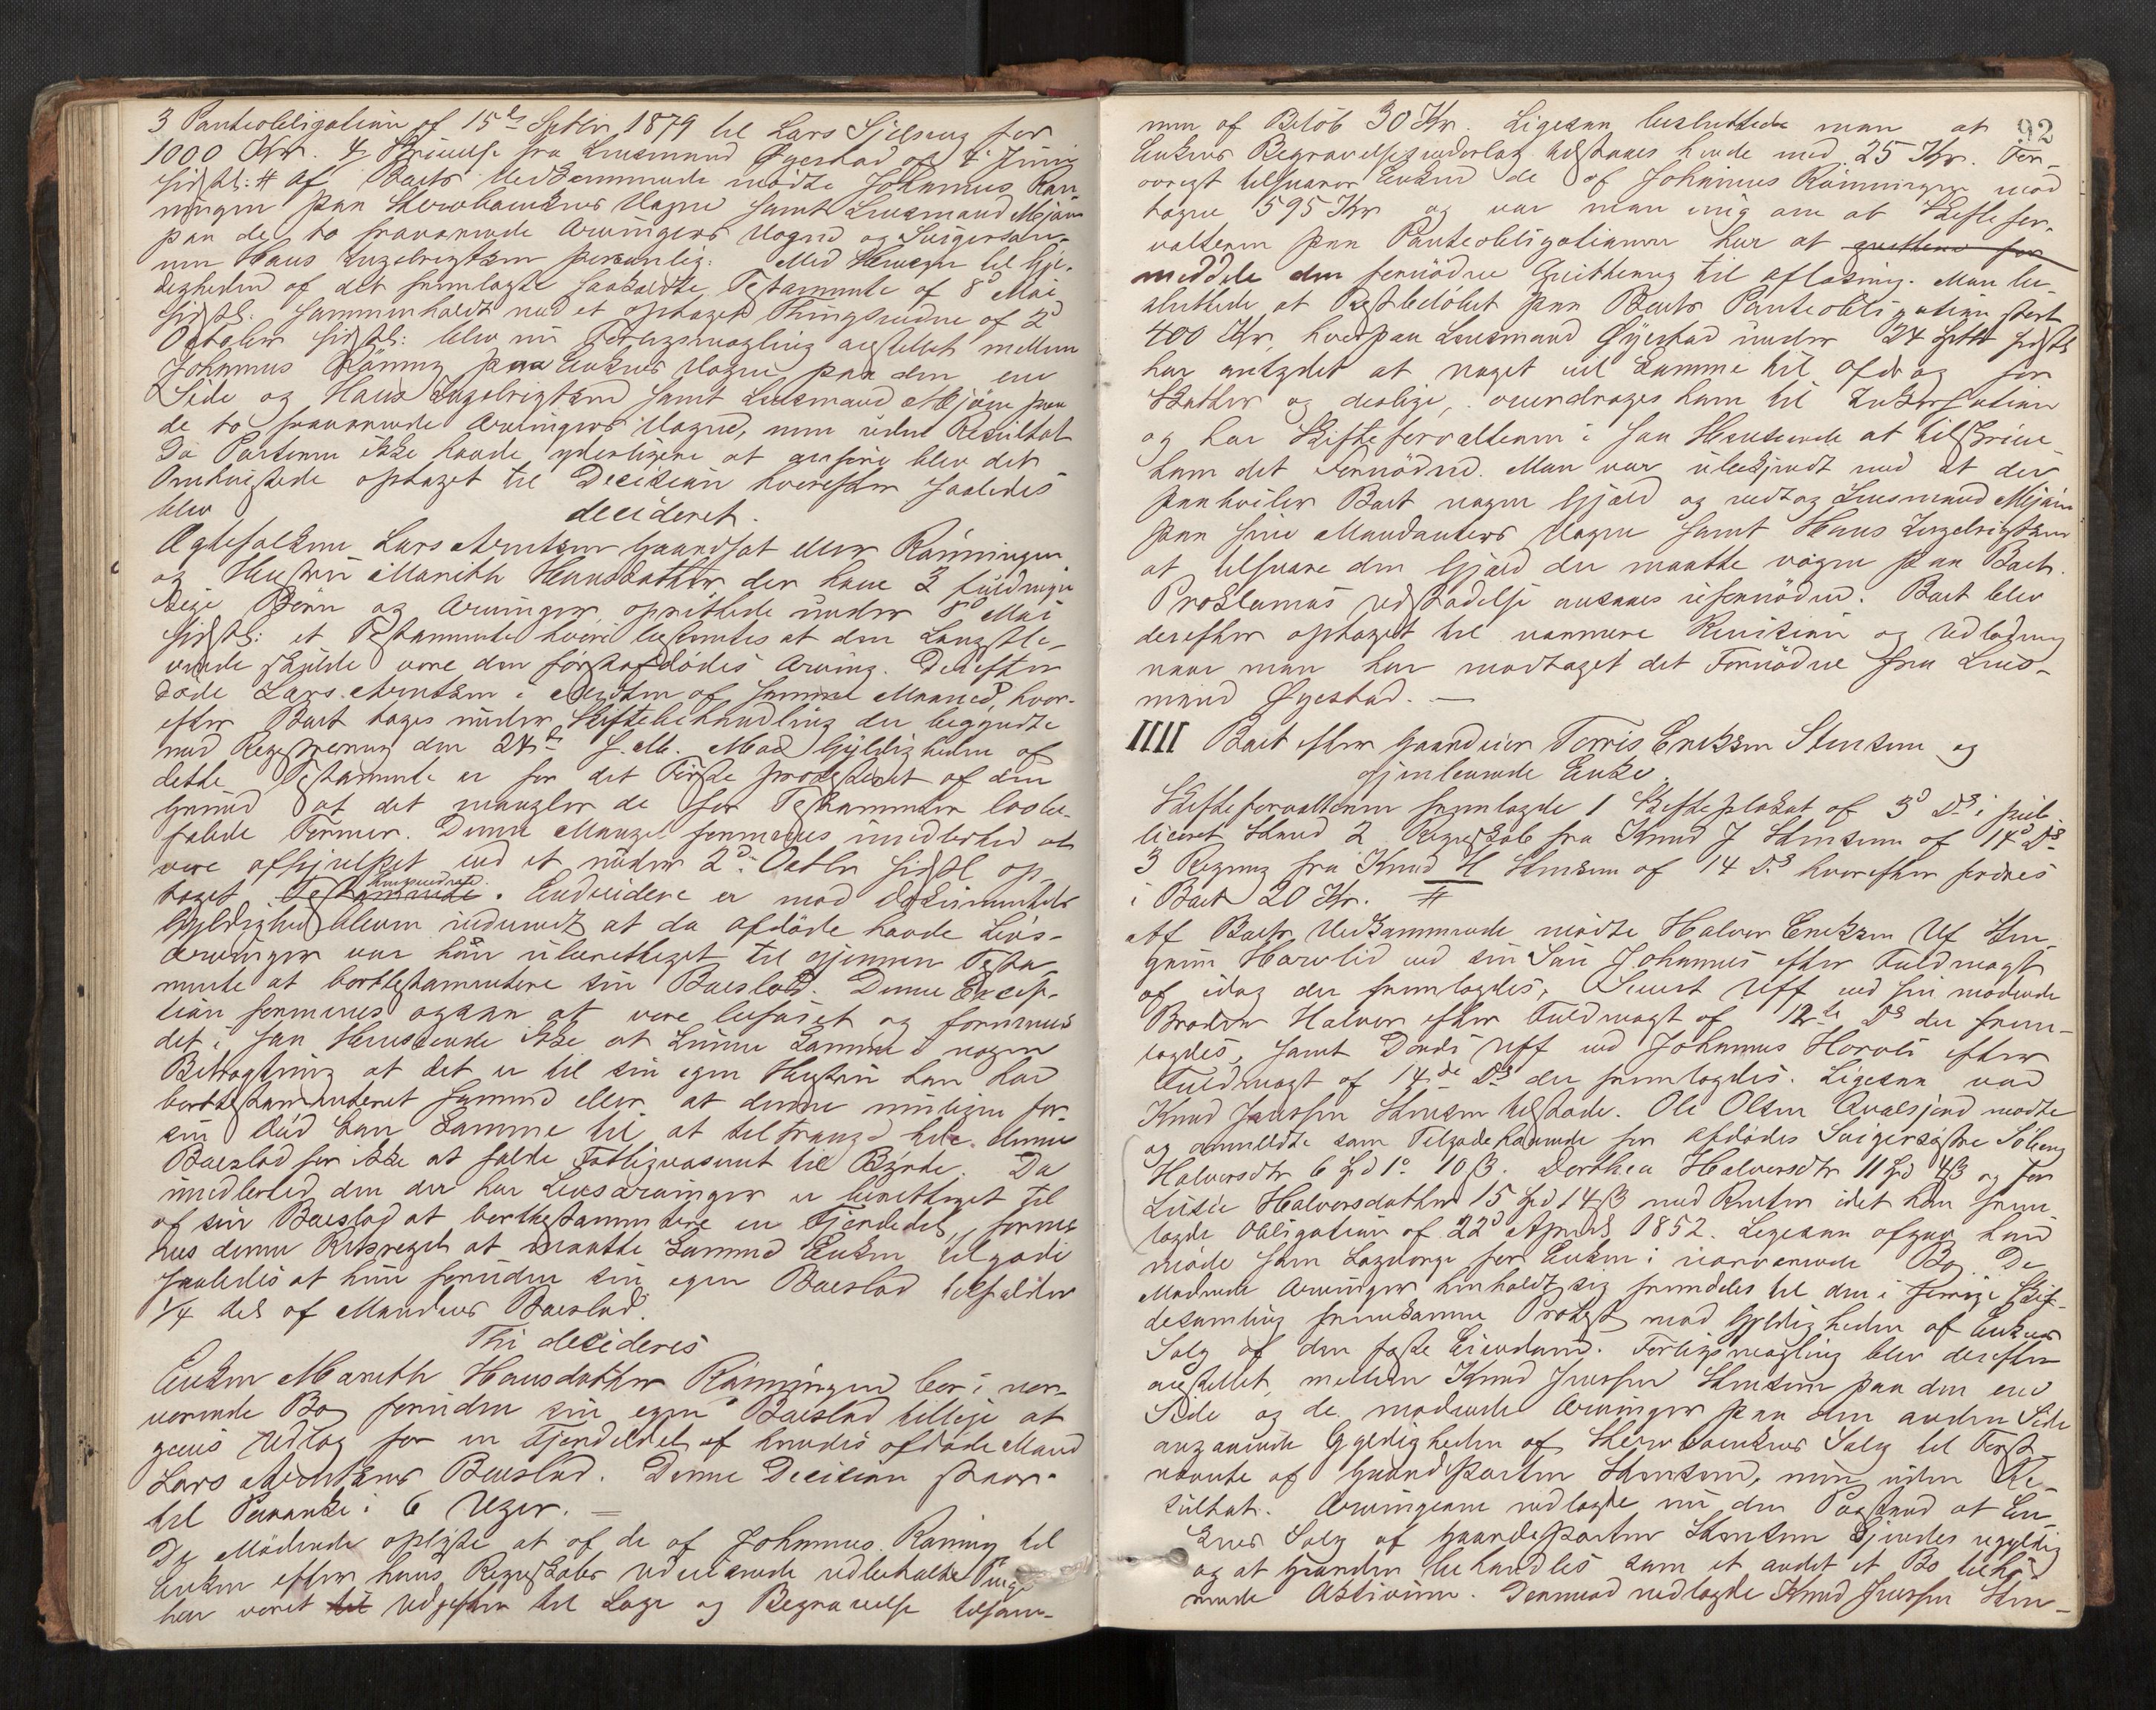 3 Panteobligation af 15de Septbr 1879 til Lars for
1000 Kr. 4, Skrivelse fra Lensmand Øyestad af
sidstl: # Af Boets Vedkommende mødte Johannes Røn-
ningen paa Stervboenkens Vegne samt Lensmand Mjøen
paa de to fraværende Arvingers Vegne og Svigersøn-
nen Hans Ingebrigtsen personlig. Med Hensyn til Gyl-
digheden af det fremlagte saakaldte Testamente af 8d Mai
sidstl: sammenholdt med et optaget Thingsvidne af 2d
Octobr sidstl: blev nu Forligsmægling anstillet mellem
Johannes Rønning paa Enkens Vegne paa den ene
Side og Hans Ingebrigtsen samt Lensmand Mjøen paa
de to fraværende Arvingers Vegne, men uden Resultat
Da Parterne ikke havde yderligere at anføre blev det
Omtvistede optaget til Decision hvorefter saaledes
blev decideret.
Ægtefolkene Lars Arntsen Gaardsat eller Rønningen
og Hustru Marith Hansdatter der have 3 fuldmyn-
dige Børn og Arvinger, oprettede under 8d Mai
sidstl: et Testamente hvori bestemtes at den Længstle-
vende skulde være den førstafdødes Arving. Derefter
døde Lars Arntsen i Midten af samme Maaned, hvor-
efter Boet toges under Skiftebehandling der begyndte
med Registrering den 24de s. M. Mod Gyldigheden af
dette Testamente er for det Første protesteret af den
Grund at det mangler de for Testamenter lovbe-
falede Former. Denne Mangel formenes imidlertid at
være afhjulpet ved et under 2d Octbr sidstl op-
taget Thingsvidne. Endvidere er mod Dokumentets
Gyldighed bleven indvendt at da afdøde havde Livs-
arvinger var han uberettiget til gjennem Testa-
mente at borttestamentere sin Boeslod. Denne Excep-
tion formenes ogsaa at være beføiet og formenes
det i saa Henseende ikke at kunne komme i nogen
Betragtning at det er til sin egen Hustru han har
borttestamenteret samme eller at denne muligens for
sin Død kan komme til at tiltrænge hele denne
Boeslod for ikke at falde Fattigvæsenet til Byrde. Da
imidlertid den der har Livsarvinger er berettiget til
af sin Boeslod at borttestamentere en Fjerdedel, forme-
nes denne Retsregel at maatte komme Enken tilgode
saaledes at hun foruden sin egen Boeslod tilfalder
1/4 del af Mandens Boeslod.
Thi decideres
Enken Marith Hansdatter Rønningen bør i nær-
værende Bo foruden sin egen Boeslod tillige at
gives Udlæg for en Fjerdedel af hendes afdøde Mand
Lars Arntsens Boeslod. Denne Decision staar
til Paaanke i 6 Uger. =
De Mødende oplyste at af de af Johannes Rønning til
Enken efter hans Regnskaber udvisende udbetalte Penge
har været til Udgifter til Læge og Begravelse tilsam-
92
men af Beløb 30 Kr. Ligesaa besluttede man at
Enkens Begravelsesunderlag tilstaaes hende med 25 Kr. For-
øvrigt tilsvarer Enken de af Johannes Rønningen mod-
tagne 595 Kr og var man enig om at Skiftefor-
valteren paa Panteobligationen har at qvittere for
meddele den fornødne Qvittering til aflæsning. Man be-
sluttede at Restbeløbet paa Boets Panteobligation stort
400 Kr, hvorpaa Lensmand Øyestad under 24 Septbr sidstl
har antydet at noget vil komme til afdrag for
Skatter og deslige, overdrages ham til Inkassation
og har Skifteforvalteren i saa Henseende at tilskrive
ham det Fornødne. Man var ubekjendt med at der
paahviler Boet nogen Gjæld og vedtog Lensmand Mjøen
paa sine Mandanters Vegne samt Hans Ingebrigtsen
at tilsvare den Gjæld der maatte vogne paa Boet.
Proklamas Udstædelse ansaaes ufornøden. Boet blev
derefter optaget til nærmere Revision og Udlodning
naar man har modtaget det Fornødne fra Lens-
mand Øyestad. —
IIII Boet efter Gaardeier Torris Eriksen Stensem og
gjenlevende Enke.
Skifteforvalteren fremlagde 1 Skifteplakat af 3d Ds i pub-
liceret Stand 2 Regnskab fra Knud J Stensem af 14d Ds
3 Regning fra Knud H Stensem af 14 Ds. hvorefter fordres
i Boet 20 Kr. #
Af Boets Vedkommende mødte Halvor Eriksen Uf
Horvlid ved sin Søn Johannes efter Fuldmagt
af idag der fremlagdes, Sivert Uff ved sin mødende
Broder Halvor efter Fuldmagt af 12te Ds der frem-
lagdes, samt Dordi Uff ved Johannes Horvli efter
Fuldmagt af 14de Ds der fremlagdes. Ligesaa var
Knud Jonssen Stensem tilstede. Ole Olsen Qvalsjord mødte
og anmeldte som Tilgodehavende for afdødes Svigersøstre Solveig
Halvorsdtr 6 Spd 1º 10 ß. Dorthea Halvorsdtr 11 Spd 4 ß og for
Lusie Halvorsdatter 15 Spd 14 ß med Renter idet han frem-
lagde Obligation af 22d April 1852. Ligesaa afgav han
møde som Lagværge for Enken i nærværende Bo. De
Mødende Arvinger henholdt sig fremdeles til den i forrige Skif-
tesamling fremkomne Protest mod Gyldigheden af Enkens
Salg af den faste Eiendom. Forligsmægling blev derefter
anstillet mellem Knud Jonssen Stensem paa den ene
Side og de mødende Arvinger paa den anden Side
angaaende Gyldigheden af Stervboenkens Salg til Først-
nævnte af Gaardparten Stensem, men uden Re-
sultat. Arvingerne nedlagde nu den Paastand at En-
kens Salg af Gaardeparten Stensem kjendes ugyldig
og at Gaarden behandles som et andet et Bo tilhø-
rende Aktivum. Derimod nedlagde Knud Jonssen Sten-